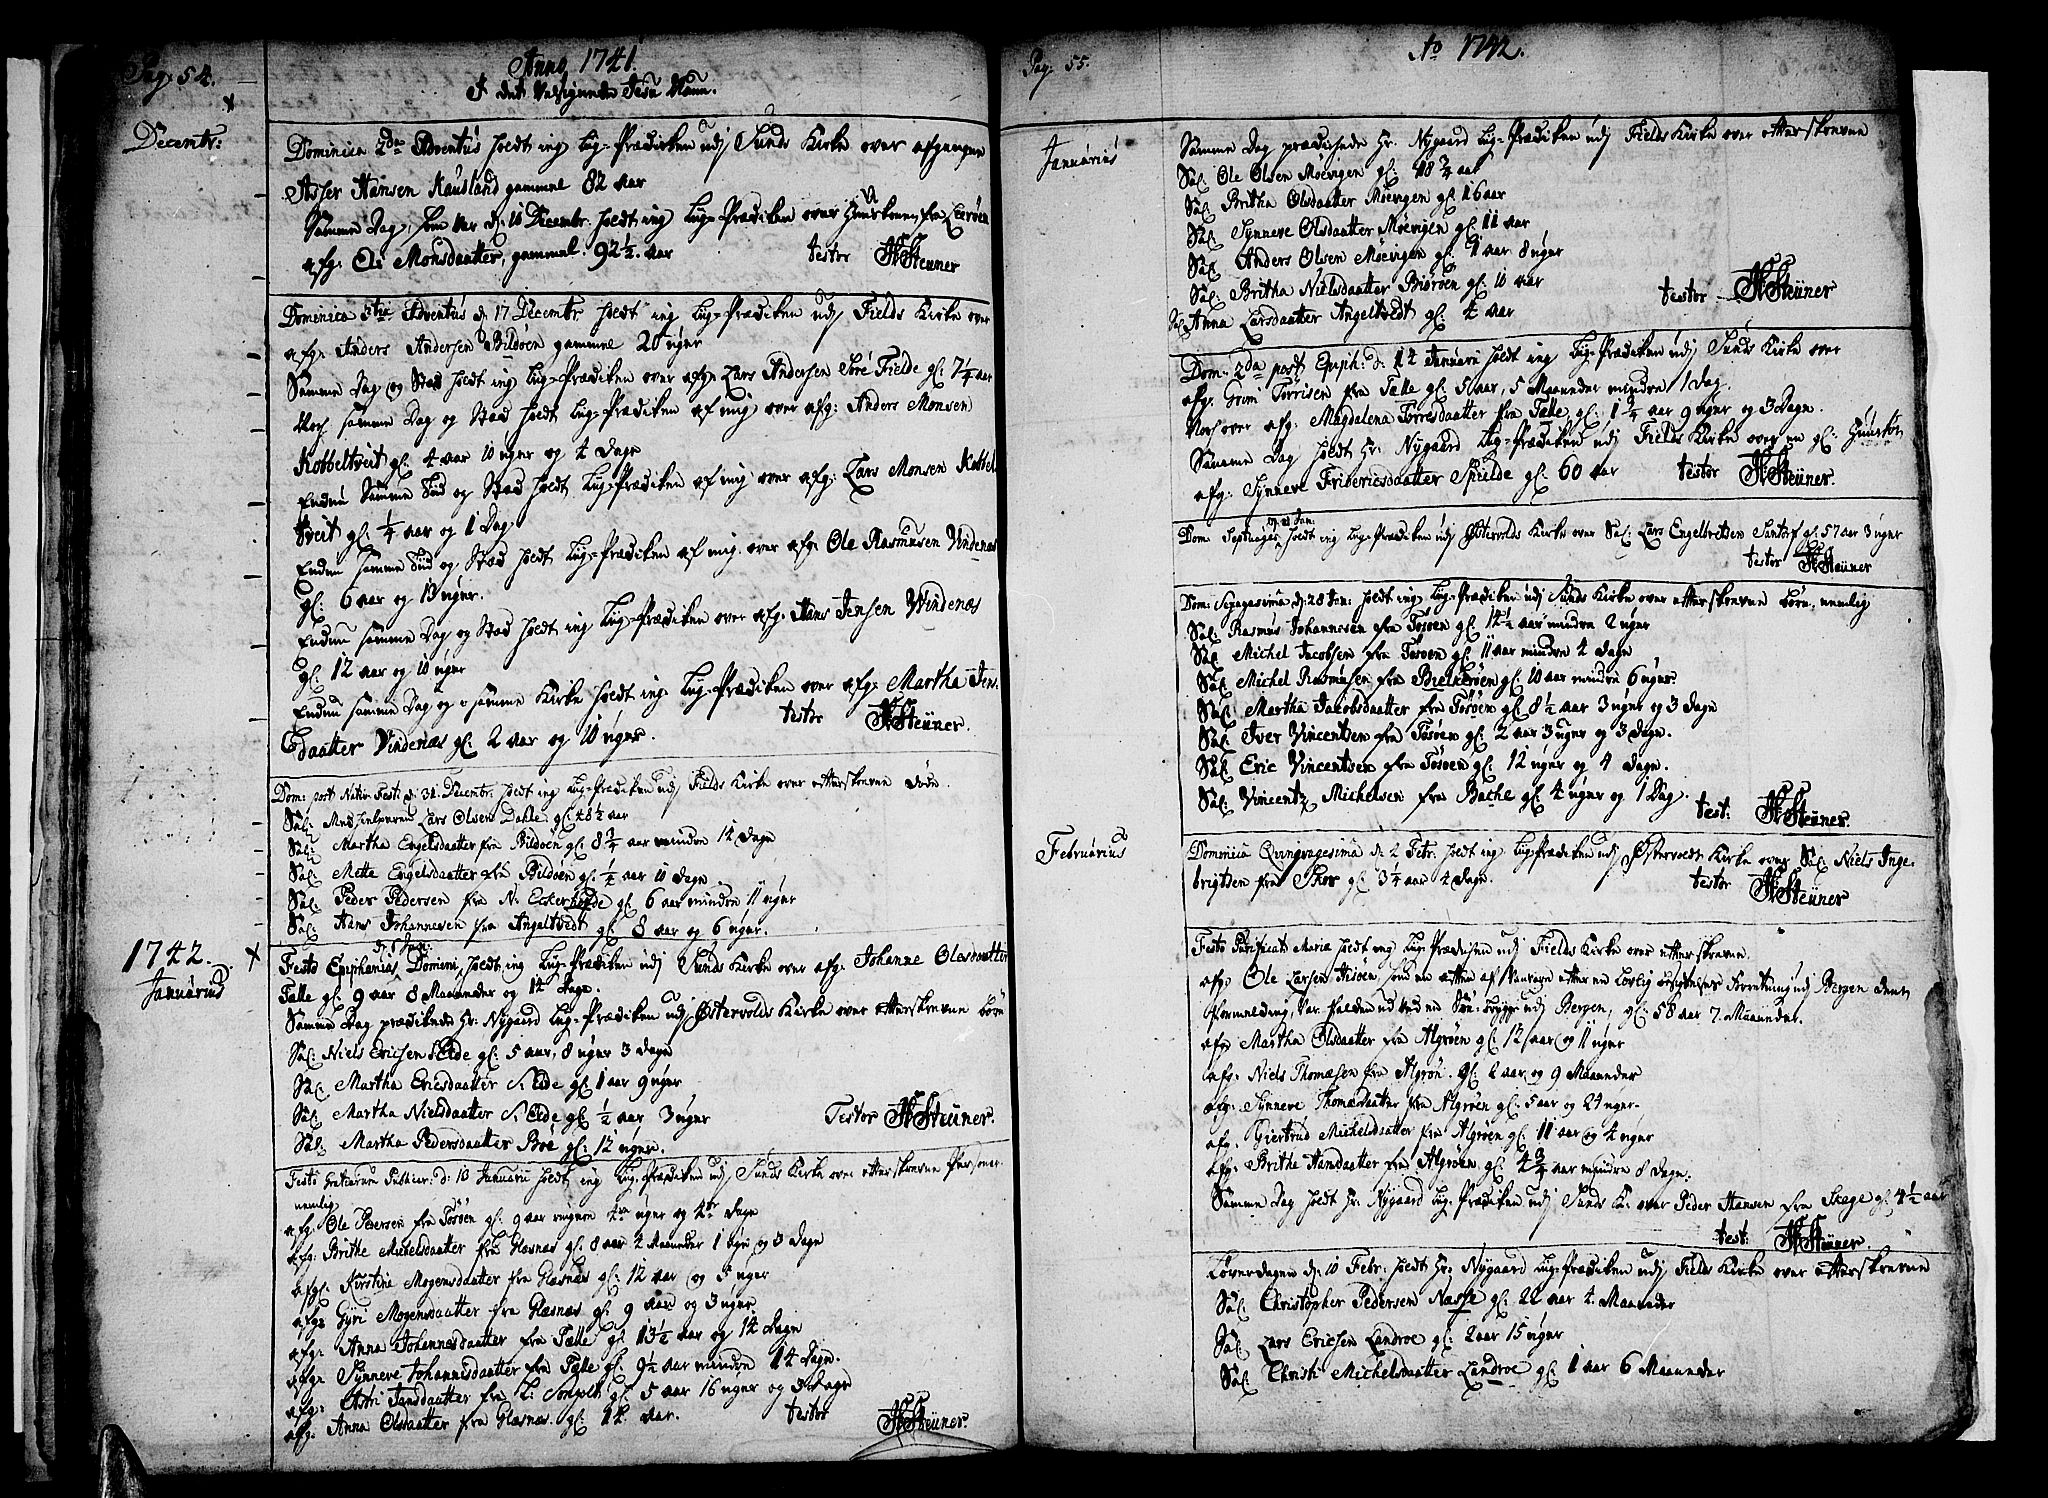 Pag: 54.
Anno 1741.
I det Velsignede Jesu Navn.
Decembr:
Dominica 2da Adventus holdt ieg Lig-Prædiken udj Sunds Kirke over afgangne
Asser Hansen Kausland gammel 82 aar
Samme Dag, som var d: 10 Decembr. holdt ieg Lig-Prædiken over Huuskonen fra Lerøen
afg. Oli Monsdaatter, gammel. 92 1/2. aar testor HSteüner
Domenica 3tia Adventus d: 17 Decembr holdt ieg Lig-Prædiken udj Fields Kirke over
afgn Anders Andersen Bildøen gammel 20 uger
Samme Dag og Stæd holdt ieg Lig-Prædiken over afgn Lars Andersen Søre Fielde gl: 7 1/4 aar
Noch samme Dag og Stæd holdt Lig-Prædiken af mig over afg: Anders Monsen
Kobbeltveit gl: 4 aar 10 uger og 4 Dage
Endnu Samme Tiid og Stæd holdt Lig-Prædiken af mig over afg: Lars Monsen Kobbel
tveit gl: 1/4 aar og 1 Dag
Endnu samme Tiid og Stæd holdt Lig-Prædiken af mig. over afg: Ole Rasmusen Vindenæs
gl: 6 aar og 13 uger.
Endnu samme Dag og Stæd holdt ieg Lig-Prædiken over afg: Hans Jensen Windenæs
gl: 12 aar og 10 uger
Endnu samme Dag og i samme Kirke holdt ieg Lig-Prædiken over afg: Martha Jens-
daatter Vindenæs gl: 2 aar og 10 uger. testor HSteüner.
Dom: post Nativ: Festi d: 31. Decembr. holdt ieg Lig-Prædiken udj Fields Kirke over efterskrevne Døde.
Sal: Medhielperen Lars Olsen Dahle gl: 48 1/2 aar
Sal: Martha Engelsdaatter fra Bildøen gl: 8 3/4 aar mindre 14 Dage
Sal: Mette Engelsdaatter fra Bildøen gl: 1/4 aar 10 Dage
Sal: Peder Pedersen fra N: Eckerhovde gl: 6 aar mindre 11 uger
Sal: Hans Johannesen fra Angeltvedt gl: 8 aar og 6 uger.
1742.
Januarius
d: 6 Jan:
Festo Epiphanias Domeni, holdt ieg Lig-Prædiken udj Sunds Kirke over afg. Johanne Olesdaatter
Tælle gl: 9 aar 8 Maaneder og 14 Dage.
Samme Dag prædikede Hr. Nygaard Lig-Prædiken udj Østervolds Kirke over efterskrevne børn
Sal: Niels Ericsen S: Eide gl: 5 aar, 8 uger 3 Dage
Sal: Martha Ericsdaatter S: Eide gl: 1 aar 9 uger
Sal: Martha Nielsdaatter S: Eide gl: 1/2 aar 3 uger Testor HSteüner.
Sal: Martha Pedersdaatter Boe gl: 12 uger.
d: 10 Januarii holdt ieg Lig-Prædiken udj Sunds Kirke over efterskrevne Personer
nemlig
afg: Ole Petersen fra Tøsøen gl: 9 aar uger og Dage
afg: Brithe Michelsdaatter fra Glæsnæs gl: 8 aar 2 Maaneder 1 uge og 3 Dage
afg: Kirstine Mogensdaatter fra Glæsnæs gl: 12 aar og 5 uger
afg: Gyri Mogensdaatter fra Glæsnæs gl: 9 aar og 3 uger
afg: Anna Johannesdaatter fra Tælle gl: 13 1/2 aar og 14 Dage
afg: Synneve Johannisdaatter fra Tælle gl: 9 1/2 aar mindre 14 Dage.
afg: Astri Jansdaatter fra gl: 5 aar 16 uger og 3 Dage
afg: Anna Olsdaatter fra Glæsnæs. gl: 12. aar. testor HSteüner.
Pag: 55.
Ao 1742.
Januarius
Samme Dag prædichede Hr. Nygaard Lig-Prædiken udj Fields Kirke over efterskrevne
Sal: Ole Olsen Møevigen gl: 18 3/4 aar
Sal: Britha Olsdaatter Møevigen gl: 16 aar
Sal: Synneve Olsdaatter Møevigen gl: 11 aar
Sal: Anders Olsen Møevigen gl: 9 aar 8 uger
Sal: Britha Nielsdaatter Biørøen gl: 10 aar testor HSteüner
Sal: Anna Larsdaatter Angeltvedt gl: 4 aar
Dom: 2da post Epiph: d: 14 Januari holdt ieg Lig-Prædiken udj Sunds Kirke over
afg: Grim Torrisen fra Tælle gl: 5 aar, 5 Maaneder mindre 1 Dag.
Noch over afg: Magdalena Torresdaatter fra Tælle, gl: 1 3/4 aar 9 uger og 3 Dage.
Samme Dag holdt Hr. Nygaard Lig-Prædiken udj Fields Kirke over en gl:
afg: Synneve Fridericsdaatter Spielde gl: 60 aar testor HSteüner.
Dom: Septuages: holdt ieg Lig-Prædiken udj Østervolds Kirke over Sal: Lars Engelbretsen Santorf gl: 57 aar 3 uger
testor HSteüner
Dom: Sexagesima d: 28 Jan: holdt ieg Lig-Prædiken udj Sunds Kirke over efterskrevne børn. nemlig
Sal: Rasmus Johannesen fra Tøsøen gl: 14 1/2 aar mindre 2 uger
Sal: Michel Jacobsen fra Tøsøen gl: 11 aar mindre 4 Dage
Sal: Michel Rasmusen fra Bielkerøen gl: 10 aar mindre 6 uger.
Sal: Martha Jacobsdaatter fra Tøsøen gl: 8 1/2 aar 3 uger og 3 Dage
Sal: Iver Vincentsen fra Tøsøen gl: 2 aar 3 uger og 3 Dage.
Sal: Eric Vincentsen fra Tøsøen gl: 12 uger og 4 Dage.
Sal: Vincentz Michelsen fra Bache gl: 4 uger og 1 Dag. test: HSteüner.
Februarius
Domenica Qvingvagesima d: 2 Febr. holdt ieg Lig-Prædiken udj Østervoldt Kirke over Sal: Niels Inge-
brigtsen fra Skor gl: 3 1/4 aar 4 Dage. testor HSteüner
Festo Purificat: Mariæ holdt ieg Lig-Prædiken udj Fields Kirke over efterskrevne.
afg: Ole Larsen udj Bergen
Formelding, var falden ud ved en Søe-brygge udj Bergen, gl: 58 aar 7. Maaneder.
afg: Martha Olsdaatter fra Algrøen gl: 12 aar og 11 uger
afg: Niels Thomæsen fra Algrøn. gl: 2 aar og 9 Maaneder
afg: Synneve Thomædaatter fra Algrøen gl: 5 aar og 24 uger.
afg: Giertrud Michelsdaatter fra Algrøen gl: 11 aar og 4 uger
afg: Brithe Hansdaatter fra Algrøen gl: 4 3/4 aar mindre 8 Dage.
Samme Dag holdt Hr. Nygaard Lig-Prædiken udj Sunds K: over Peder Hansen fra Skage gl: 4 1/2 aar
test: HSteüner
Løverdagen d: 10 Febr. holdt Hr: Nygaard Lig-Prædiken udj Fields Kirke over efterskrevne
Sal: Christopher Pedersen Næsse gl: 22 aar 4. Maaneder
Sal: Lars Ericsen Landroe gl: 2 aar 15 uger
Sal: Christi Michelsdaatter Landroe gl: 1 aar 6 Maaneder